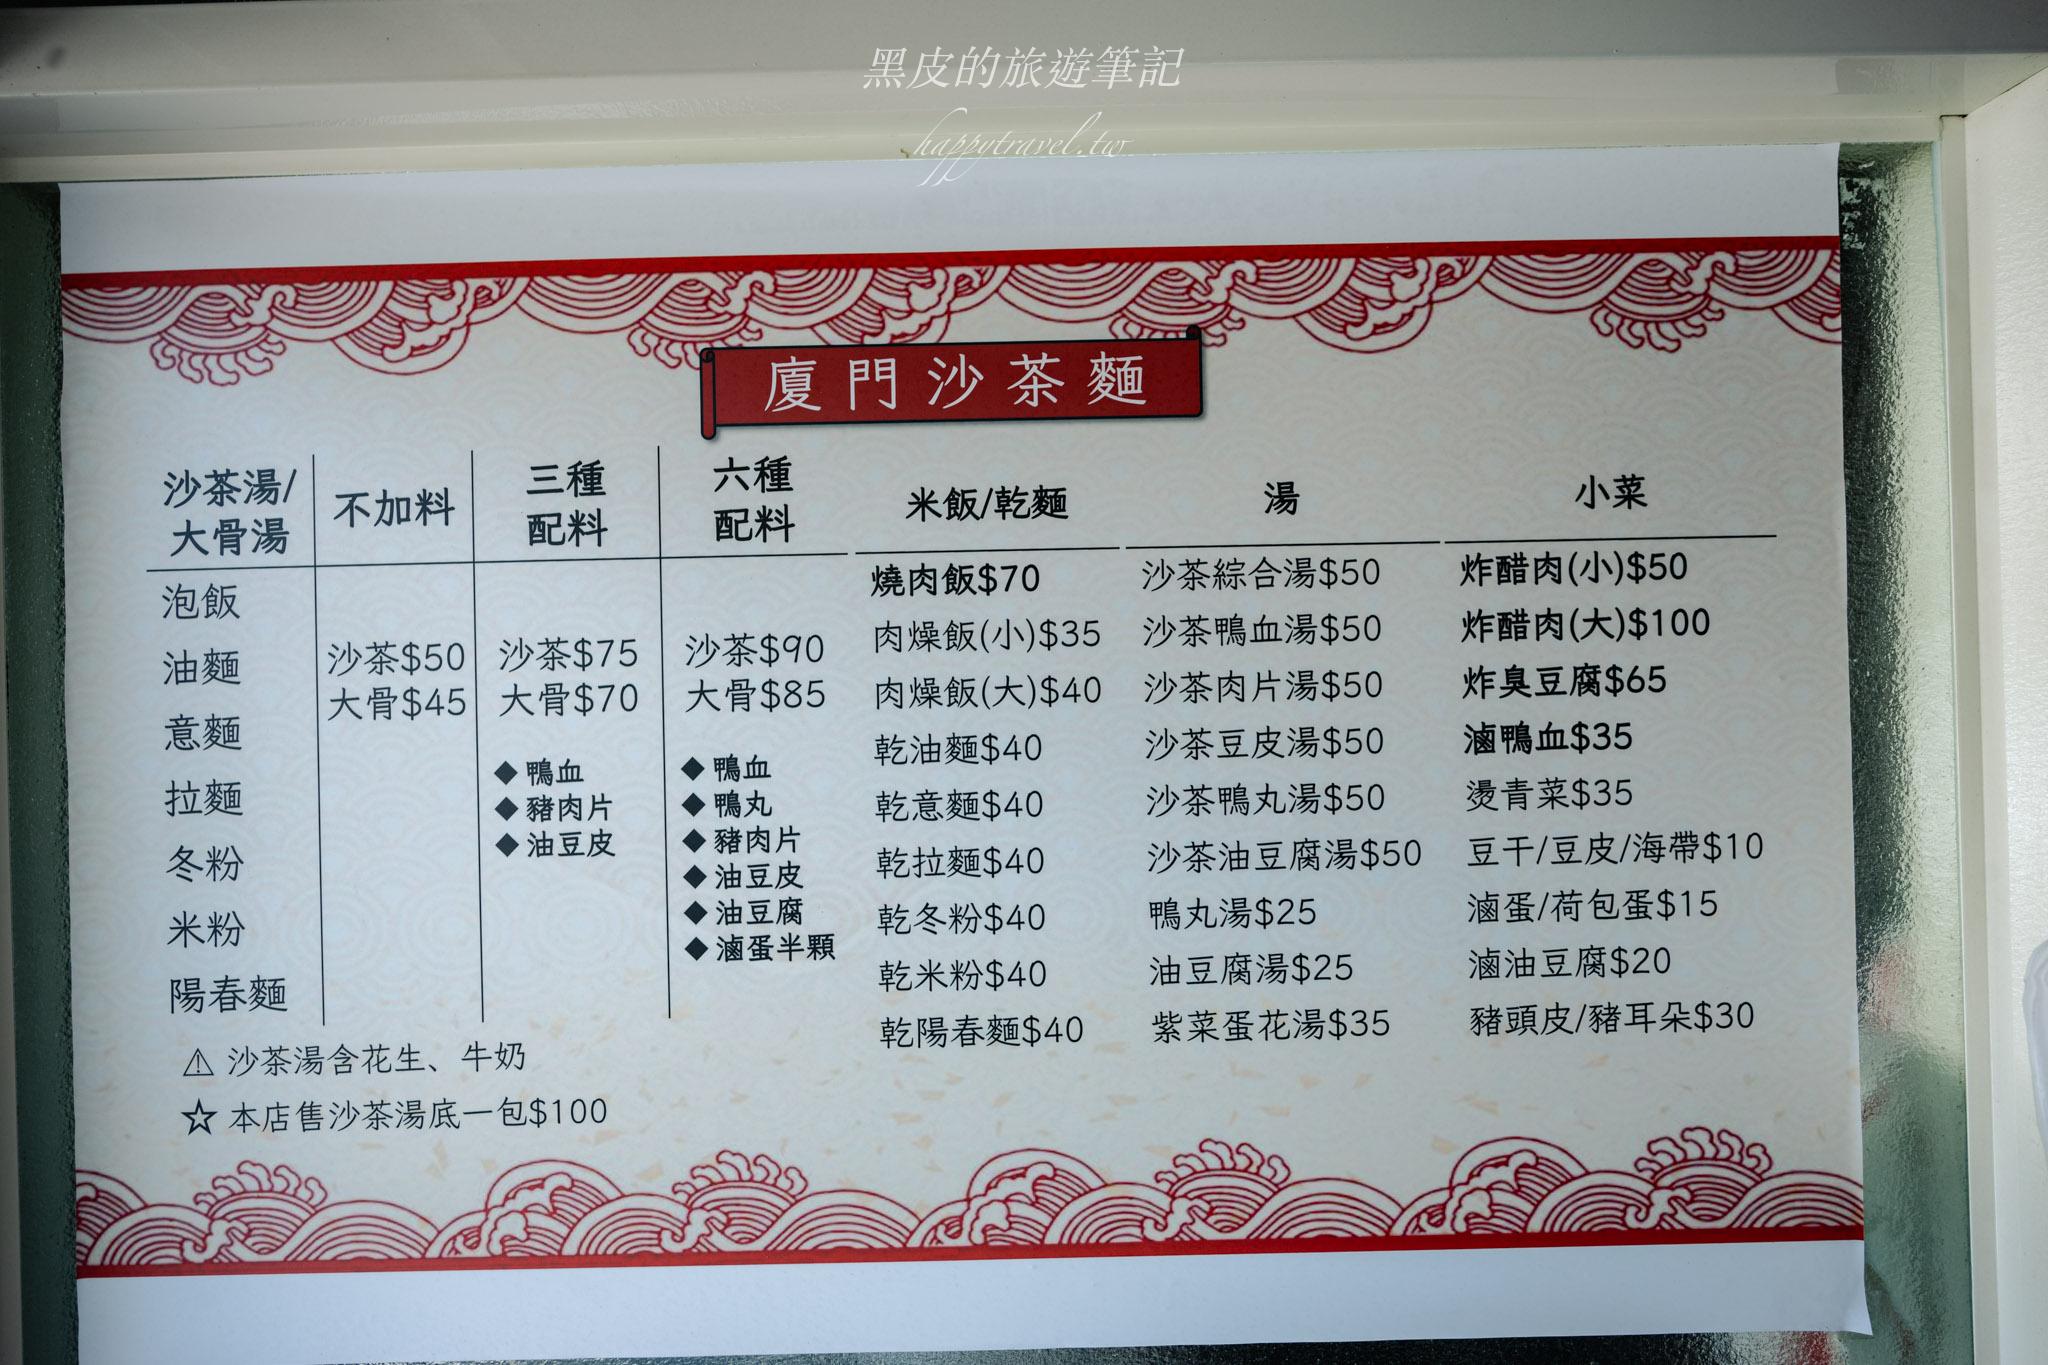 黑皮的旅遊筆記
happytravel.tw
廈門沙茶麵
沙茶湯/
大骨湯
不加料
三種
配料
六種
配料
泡飯
油麵
意麵
拉麵
冬粉
米粉
陽春麵
沙茶$50
大骨$45
沙茶$75
大骨$70
◆鴨血
◆豬肉片
◆油豆皮
沙茶$90
大骨$85
◆鴨血
◆鴨丸
◆豬肉片
◆油豆皮
◆油豆腐
◆滷蛋半顆
⚠ 沙茶湯含花生、牛奶
☆ 本店售沙茶湯底一包$100
米飯/乾麵
燒肉飯$70
肉燥飯(小)$35
肉燥飯(大)$40
乾油麵$40
乾意麵$40
乾拉麵$40
乾冬粉$40
乾米粉$40
乾陽春麵$40
湯
沙茶綜合湯$50
沙茶鴨血湯$50
沙茶肉片湯$50
沙茶豆皮湯$50
沙茶鴨丸湯$50
沙茶油豆腐湯$50
鴨丸湯$25
油豆腐湯$25
紫菜蛋花湯$35
小菜
炸醋肉(小)$50
炸醋肉(大)$100
炸臭豆腐$65
滷鴨血$35
燙青菜$35
豆干/豆皮/海帶$10
滷蛋/荷包蛋$15
滷油豆腐$20
豬頭皮/豬耳朵$30